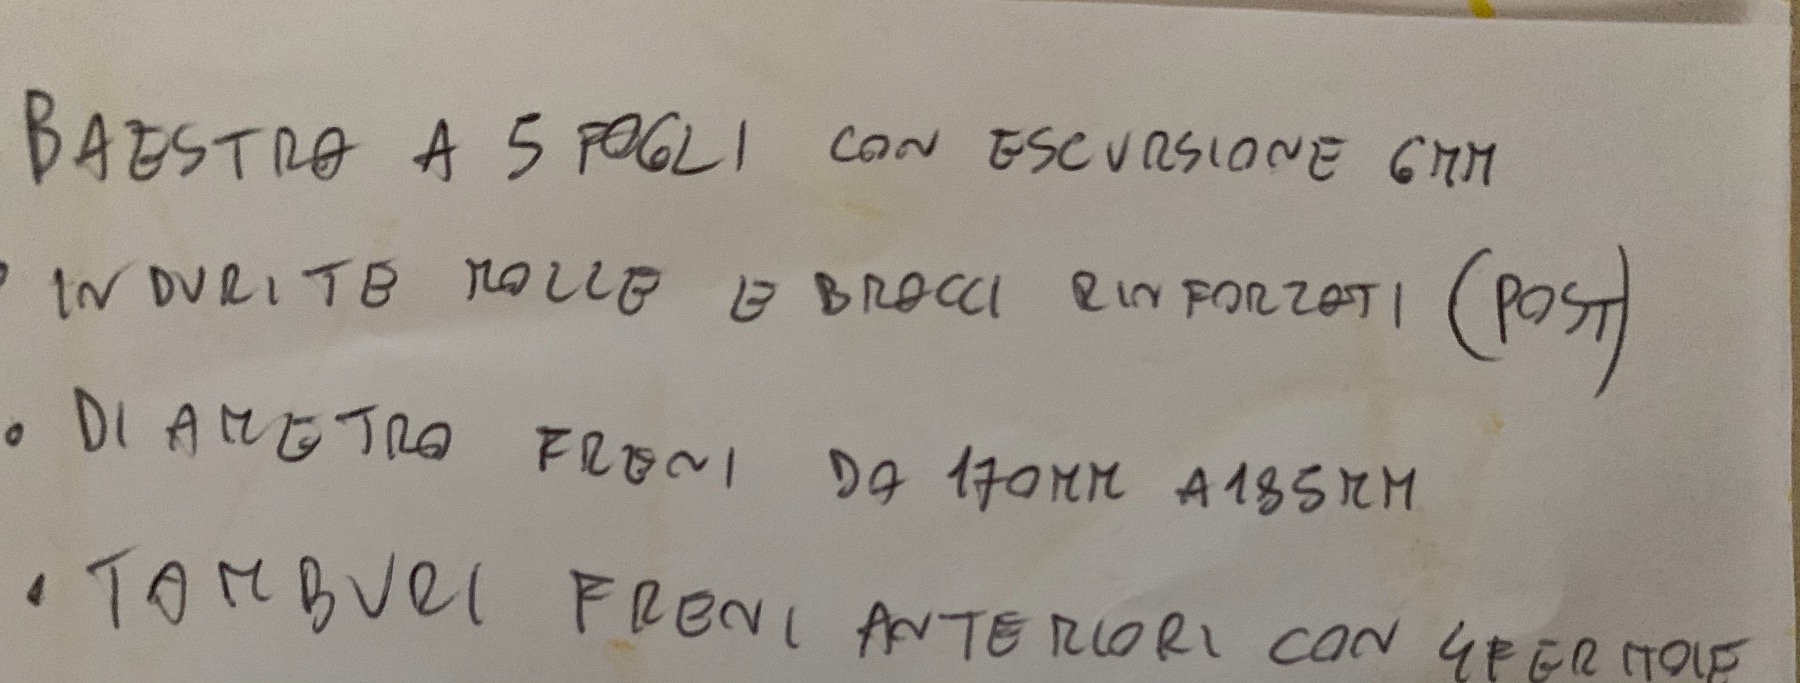 BAESTRA A 5 FOGLI CON ESCURSIONE 6MM
INDURITE MOLLE E BRACCI RINFORZATI (POST)
• DIAMETRO FRENI DA 170MM A 185MM
• TAMBURI FRENI ANTERIORI CON 4 FERMOLE